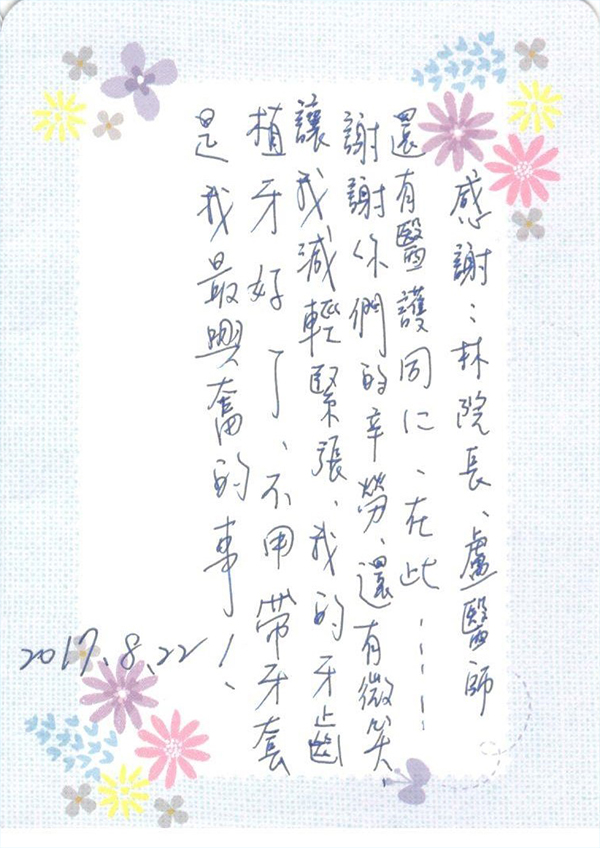 感謝:林院長、盧醫師
還有醫護同仁、在此……
謝謝你們的辛勞、還有微笑、
讓我減輕緊張、我的牙齒
植牙好了、不用带牙套
是我最興奮的事!、
2017.8.22